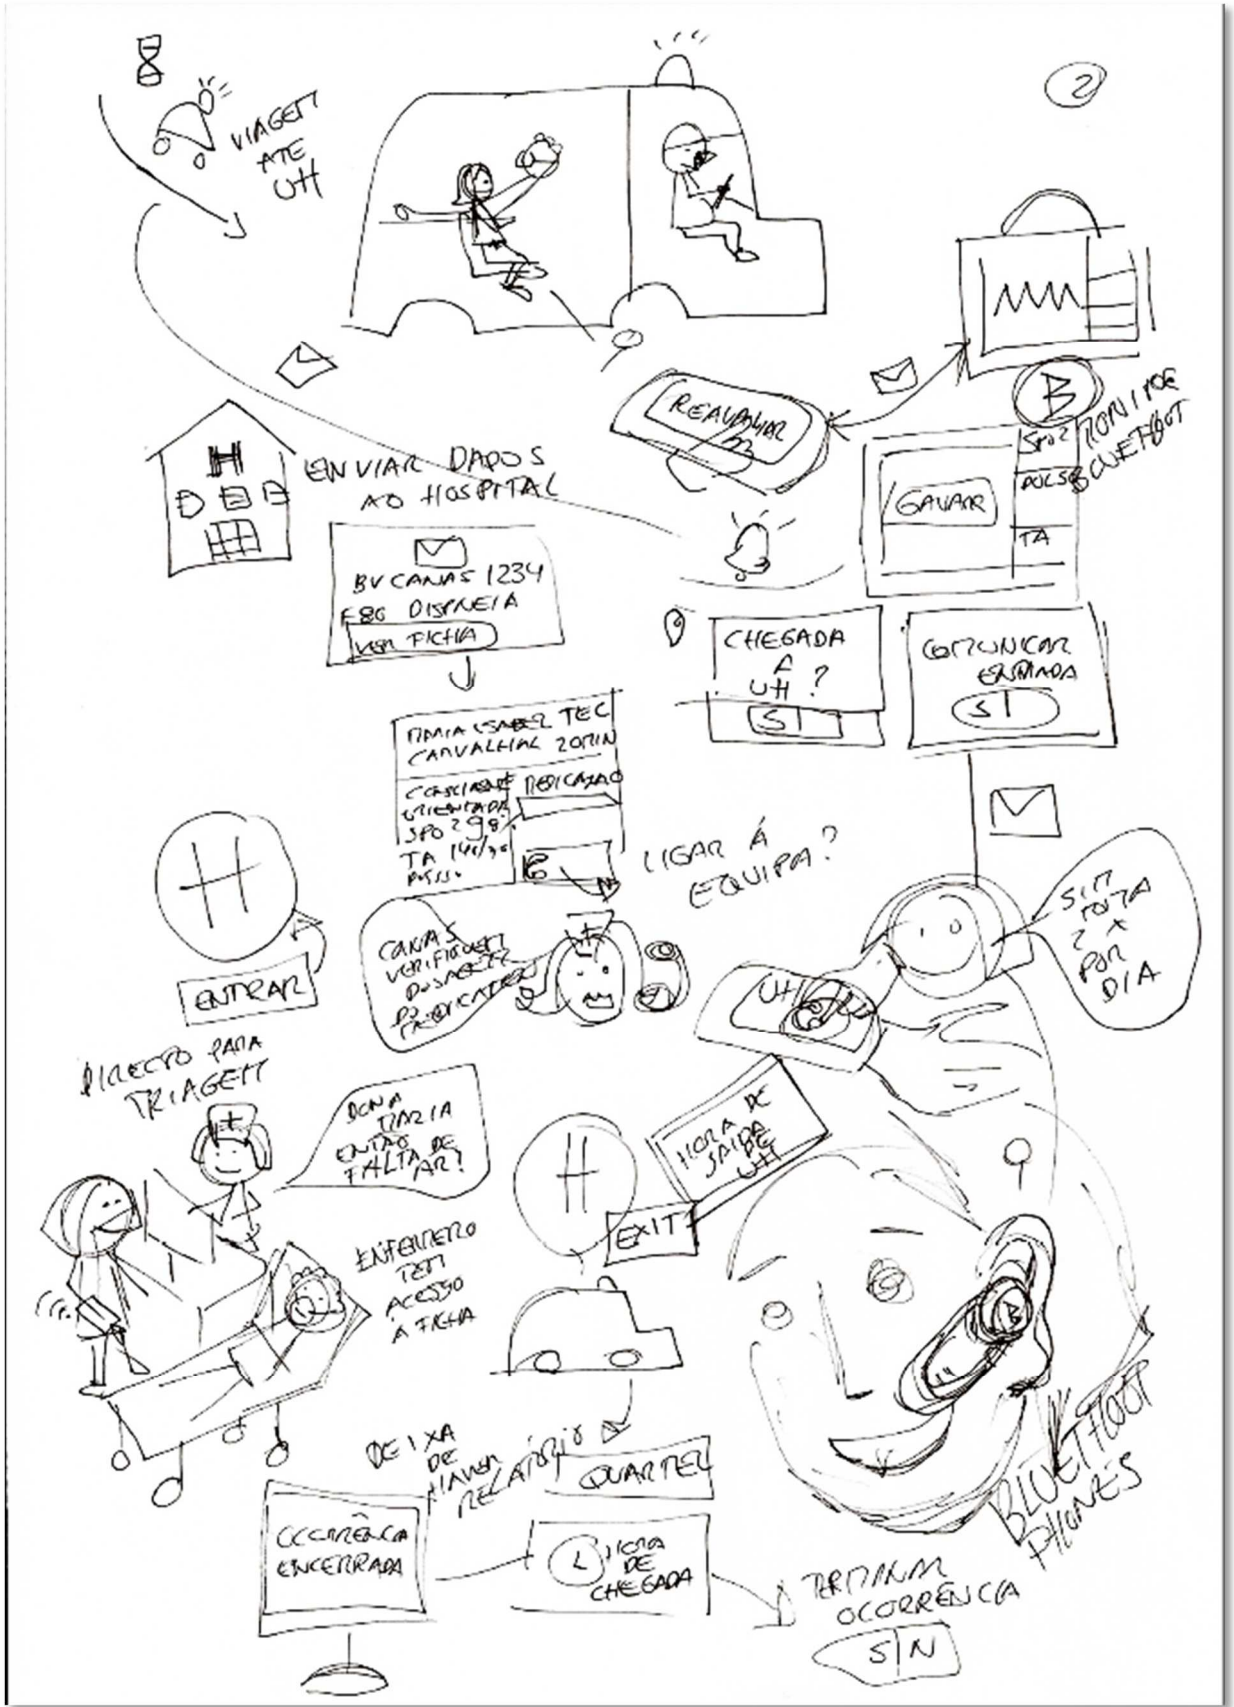 2
VIAGEM
ATE
UH
REAVALIAR
B
SPO2
PULSO
TA
GRAVAR
H
ENVIAR DADOS
AO HOSPITAL
BV CANAS 1234
F86 DISPNEIA
VER FICHA
CHEGADA
A
UH ?
S
COMUNICAR
ENTRADA
S
MARIA ISABEL TEC
CARVALHAL 20MIN
CONSCIENTE
ORIENTADA
SPO2 98%
TA
MEDICAÇÃO
LIGAR Á
EQUIPA?
CANAS
VERIFIQUEM
DOSAGEM
DO
UH
SIM
TOMA
2 X
POR
DIA
H
ENTRAR
DIRECTO PARA
TRIAGEM
DONA
MARIA
ENTÃO
FALTA DE
AR?
ENFERMEIRO
TEM
ACESSO
À FICHA
H
EXIT
HORA DE
SAIDA
DE
UH
B
BLUETHOOT
PHONES
DEIXA
DE
HAVER
RELATÓRIO
QUARTEL
OCORRÊNCIA
ENCERRADA
HORA
DE
CHEGADA
TERMINAR
OCORRÊNCIA
S|N